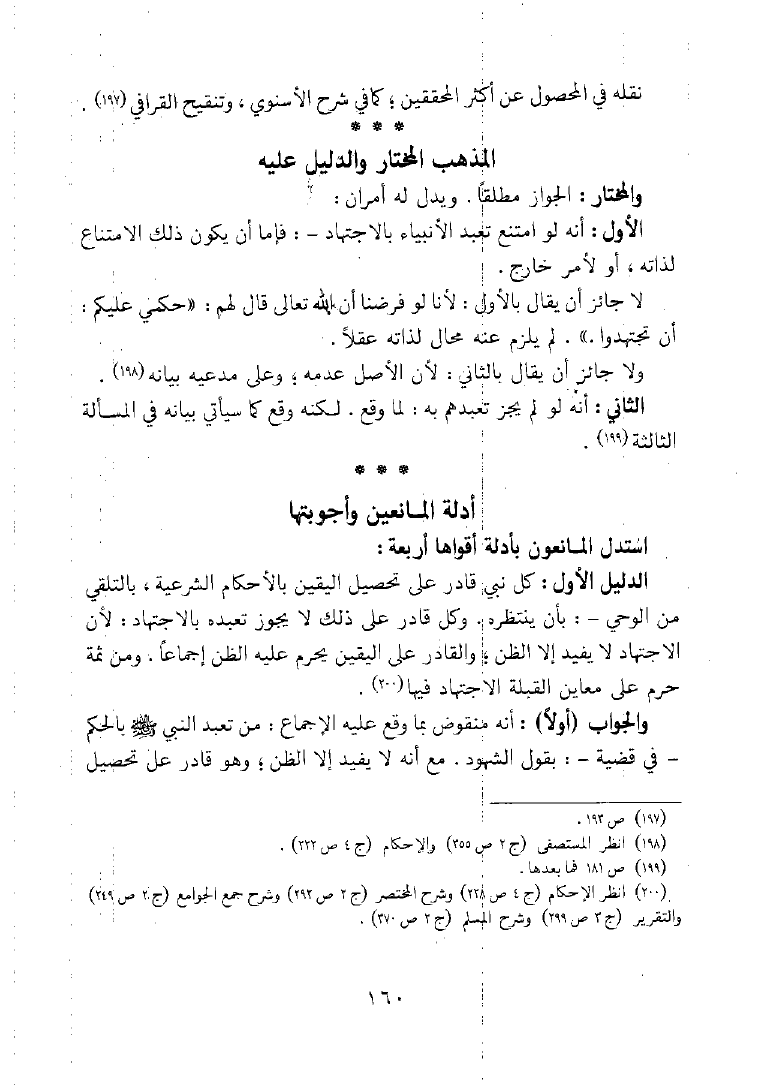 نقله في المحصول عن أكثر المحققين ؛ كما في شرح الأسنوي ، وتنقيح القرافي (١٩٧) .
* * *
المذهب المختار والدليل عليه
والمختار : الجواز مطلقاً . ويدل له أمران :
الأول : أنه لو امتنع تعبد الأنبياء بالاجتهاد – : فإما أن يكون ذلك الامتناع
لذاته ، أو لأمر خارج .
لا جائز أن يقال بالأول : لأنا لو فرضنا أن الله تعالى قال لهم : «حكمي عليكم :
أن تجتهدوا .» . لم يلزم عنه محال لذاته عقلاً .
ولا جائز أن يقال بالثاني : لأن الأصل عدمه ؛ وعلى مدعيه بيانه (١٩٨) .
الثاني : أنه لو لم يجز تعبدهم به : لما وقع . لكنه وقع كما سيأتي بيانه في المسألة
الثالثة (١٩٩) .
* * *
أدلة المانعين وأجوبتها
استدل المانعون بأدلة أقواها أربعة :
الدليل الأول : كل نبي قادر على تحصيل اليقين بالأحكام الشرعية ، بالتلقي
من الوحي – : بأن ينتظره . وكل قادر على ذلك لا يجوز تعبده بالاجتهاد : لأن
الاجتهاد لا يفيد إلا الظن ؛ والقادر على اليقين يحرم عليه الظن إجماعاً . ومن ثمة
حرم على معاين القبلة الاجتهاد فيها (٢٠٠) .
والجواب (أولاً) : أنه منقوض بما وقع عليه الإجماع : من تعبد النبي ﷺ بالحكم
– في قضية – : بقول الشهود . مع أنه لا يفيد إلا الظن ؛ وهو قادر على تحصيل
(١٩٧) ص ١٩٣ .
(١٩٨) انظر المستصفى (ج ٢ ص ٣٥٥) والإحكام (ج ٤ ص ٢٢٢) .
(١٩٩) ص ١٨١ فما بعدها .
(٢٠٠) انظر الإحكام (ج ٤ ص ٢٢٨) وشرح المختصر (ج ٢ ص ٢٩٢) وشرح جمع الجوامع (ج ٢ ص ٢٤٩)
والتقرير (ج ٣ ص ٢٩٩) وشرح المسلم (ج ٢ ص ٣٧٠) .
١٦٠